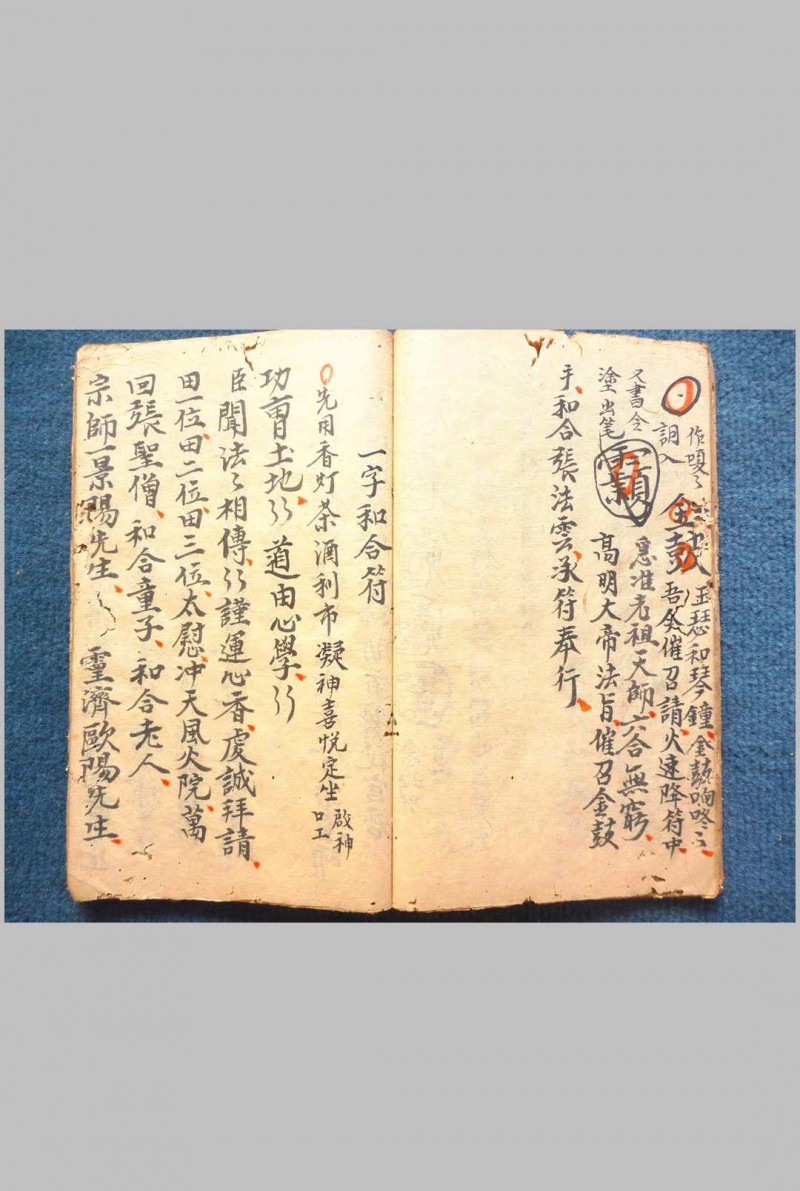 作嗄々
調入
金鼓
玉瑟和琴鐘金鼓响咚々
吾今催召請火速降符中
又書令
塗出笔
急准老祖天師六合無窮
高明大帝法旨催召金鼓
手和合張法雲承符奉行
一字和合符
先用香灯茶酒利市凝神喜悦定坐
啟神
口工
功曹土地〻道由心學〻
臣聞法々相傳〻謹運心香虔誠拜請
田一位田二位田三位太慰冲天風火院萬
回張聖僧和合童子和合老人
宗師一景陽先生 靈濟歐陽先生